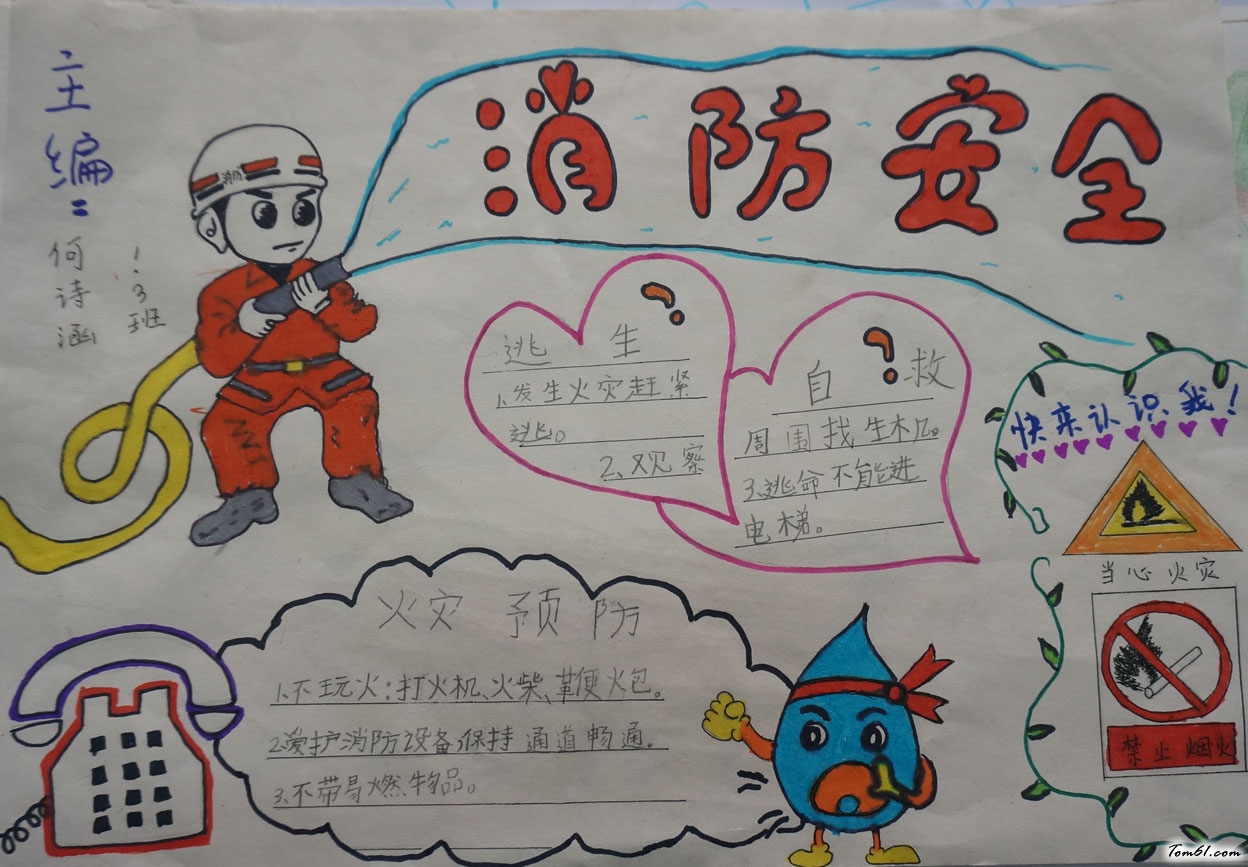 主编：
何诗涵
1.3班
消防
消防安全
逃生？
1.发生火灾赶紧
逃。
2、观察
自救？
周围找生机。
3.逃命不能进
电梯。
快来认识我！
当心火灾
禁止烟火
火灾预防
1.不玩火：打火机、火柴、鞭炮。
2.爱护消防设备，保持通道畅通。
3.不带易燃物品。
Tom61.com